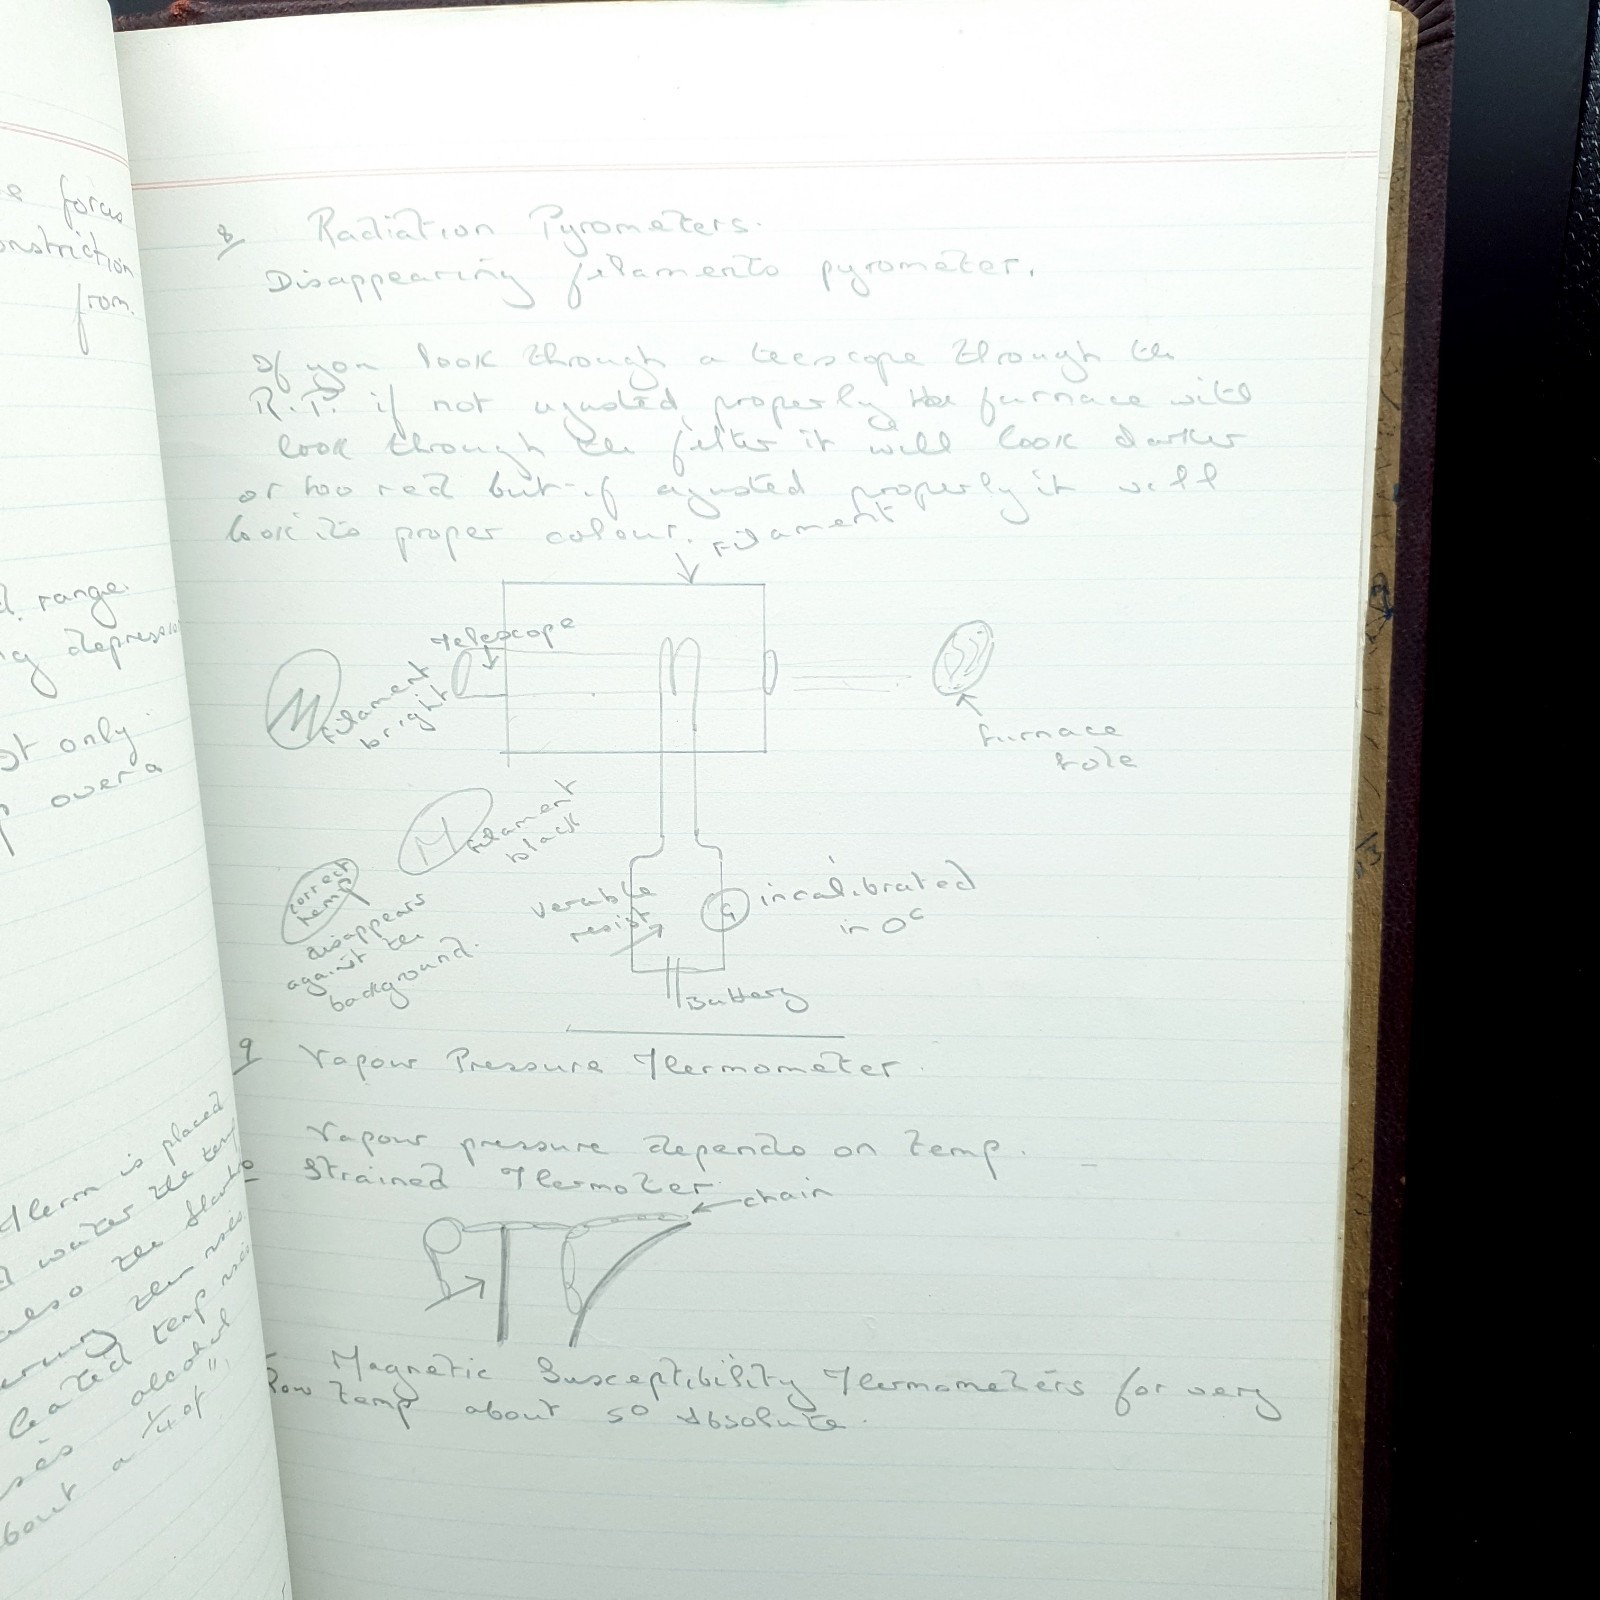 e force
onstriction
from.
d. range.
ng depression
st only
p over a
therm is placed
d water the tem
also the
then rises.
heated temp ris
ses alcohol
bout a 1/4 of "
8 Radiation Pyrometers.
Disappearing filaments pyrometer.
If you look through a teescope through the
R.P. if not ajusted properly the furnace with
look through the filter it will look darker
or too red but if ajusted properly it will
look its proper colour.
Filament
Telescope
Filament
bright
Furnace
hole
Filament
black
correct
temp
disappears
against the
background.
verable
resist
G incalibrated
in 0c
Battery
9 Vapour Pressure Thermometer.
Vapour pressure depends on temp.
Strained Thermoter.
chain
Magnetic Susceptibility Thermometers for very
low temp about 5o Absolute.